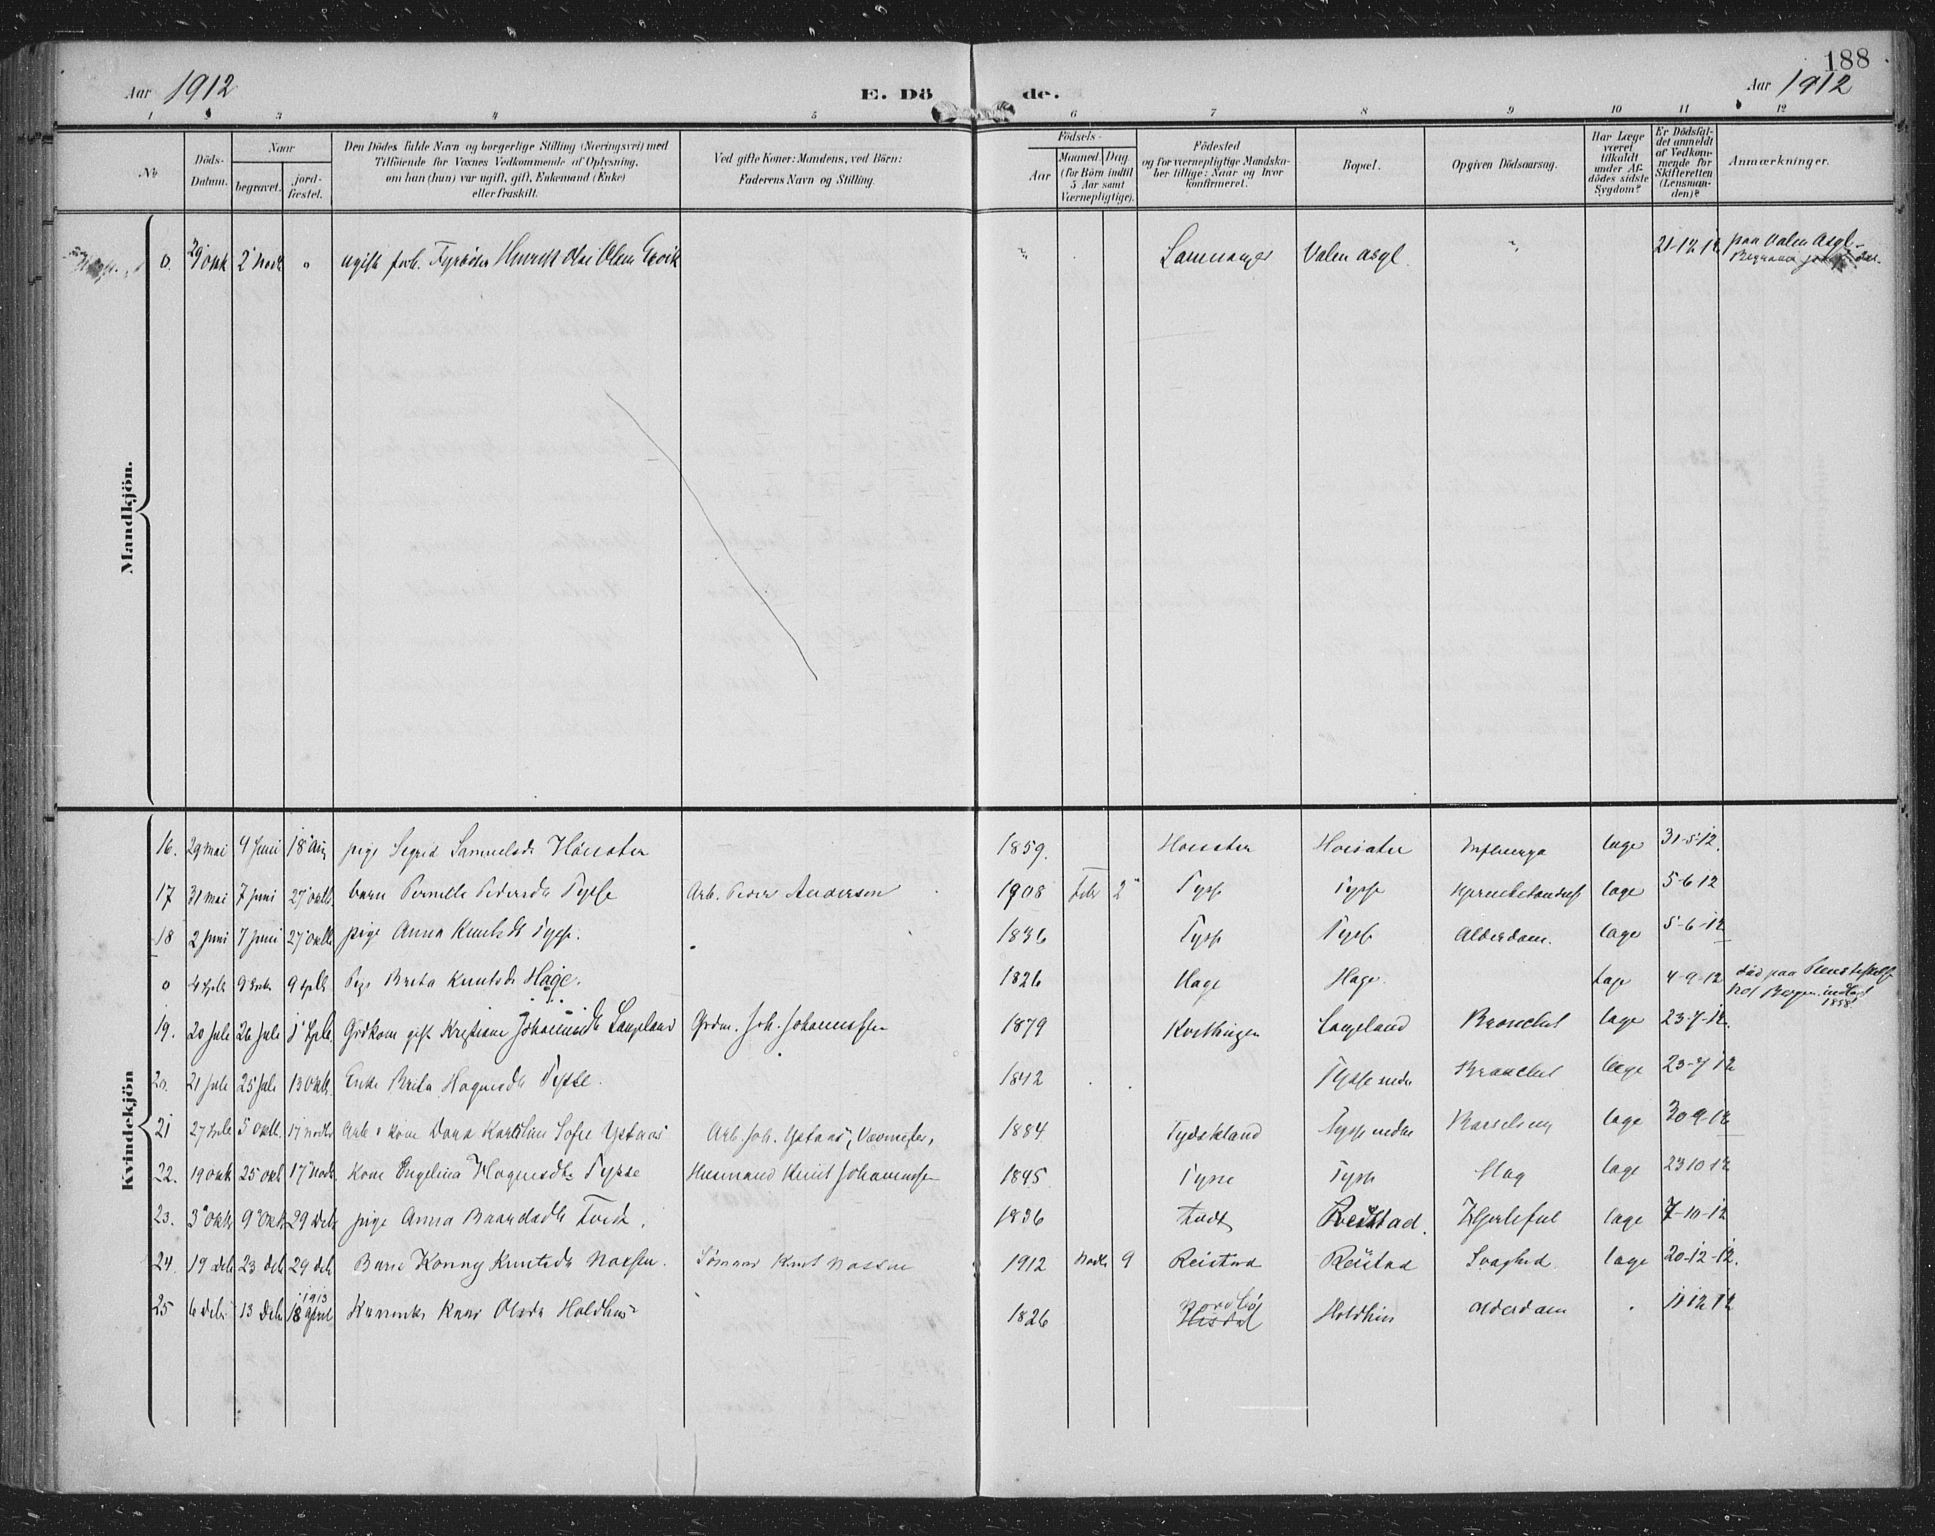 188
Aar 1912
E. Dö de.
Aar 1912
1 2 3 4 5 6 7 8 9 10 11 12
No
Döds-Datum.
Naar
begravet.
jord-fæstet.
Den Dödes fulde Navn og borgerlige Stilling (Næringsvei) med
Tilföiende for Voxnes Vedkommende af Oplysning,
om han (hun) var ugift, gift, Enkemand (Enke)
eller fraskilt.
Ved gifte Koner: Mandens, ved Börn:
Faderens Navn og Stilling.
Födsels-
Aar
Maaned Dag
(for Börn indtil
5 Aar samt
Værnepligtige).
Födested
og for værnepligtige Mandska-
ber tillige: Naar og hvor
konfirmeret.
Bopæl.
Opgiven Dödsaarsag.
Har Læge
været
tilkaldt
under Af-
dödes sidste
Sygdom?
Er Dödsfal-
det anmeldt
af Vedkom-
mende for
Skifteretten
(Lensman-
den)?
Anmærkninger.
Mandkjön.
0. 29 okt 2 novb " ugift forh. Fyrböter Henrik Olai Olsen Tveit " Samnanger Valen asyl. " 21-12-12 paa Valen Asyl
Kvindekjön
16. 29 mai 4 Juni 18 Aug pige Sigrid Samuelsdt Höisæter 1859. Hoisæter Hoisæter Influenza læge 31-5-12.
17 31 mai 7 juni 27 oktb barn Pernille Pedersdt Tysse Arb. Peder Anderson 1908 Feb 2 Tysse Tysse læge 5-6-12
18 2 juni 7 juni 27 oktb pige Anna Knutsdt Tysse. 1836 Tysse Tysse Alderdom. læge 5-6-12
0 4 Septb 9 Septb 9 septb Pige Brita Knutsdt Hage. 1826 Hage Hage læge 4-9-12 död paa Pleiestiftelse
No 1 Bergen. indlagt
1858
19. 20 Juli 26 Juli 1 Septb Grdkone gift Kristiane Johannesdt Langeland Grdm. Joh. Johannessen 1879 Langeland læge 23-7-12.
20. 21 Juli 25 Juli 13 Okt. Enke Brita Haguesdt Tysse. 1842 Tysse nedre læge 23-7-12
21 27 Septb 5 oktb. 17 novb Arb. kone Dora Karoline Sofie Ystaas Arb. Joh. Ystaas, Vævmester, 1884 Tydskland Tysse nedre Barselseng læge 30-9-12
22. 19 okt 25 okt 17 novb. Kone Engelina Haguesdt Tysse Husmand Knut Johannessen 1845 Tysse Tysse Slag læge 23 10-12
23. 3 Okt 9 Okt 29 Deb pige Anna Baardsdt Tveit. 1836 Tvedt Reistad. Hjertefeil læge 7-10-12
24. 19 deb 23 deb 29 deb Barn Konny Knutsdt Naessen. Sömand Knut Nossen 1912 Novb 9 Reistad Reistad læge 20-12-12.
25 6 deb 13 Deb 1913 18 April Kaarenke Kari Olsdt Holdhus 1826 Nordbö Hisdal Holdhus Alderdom . 11 12 12